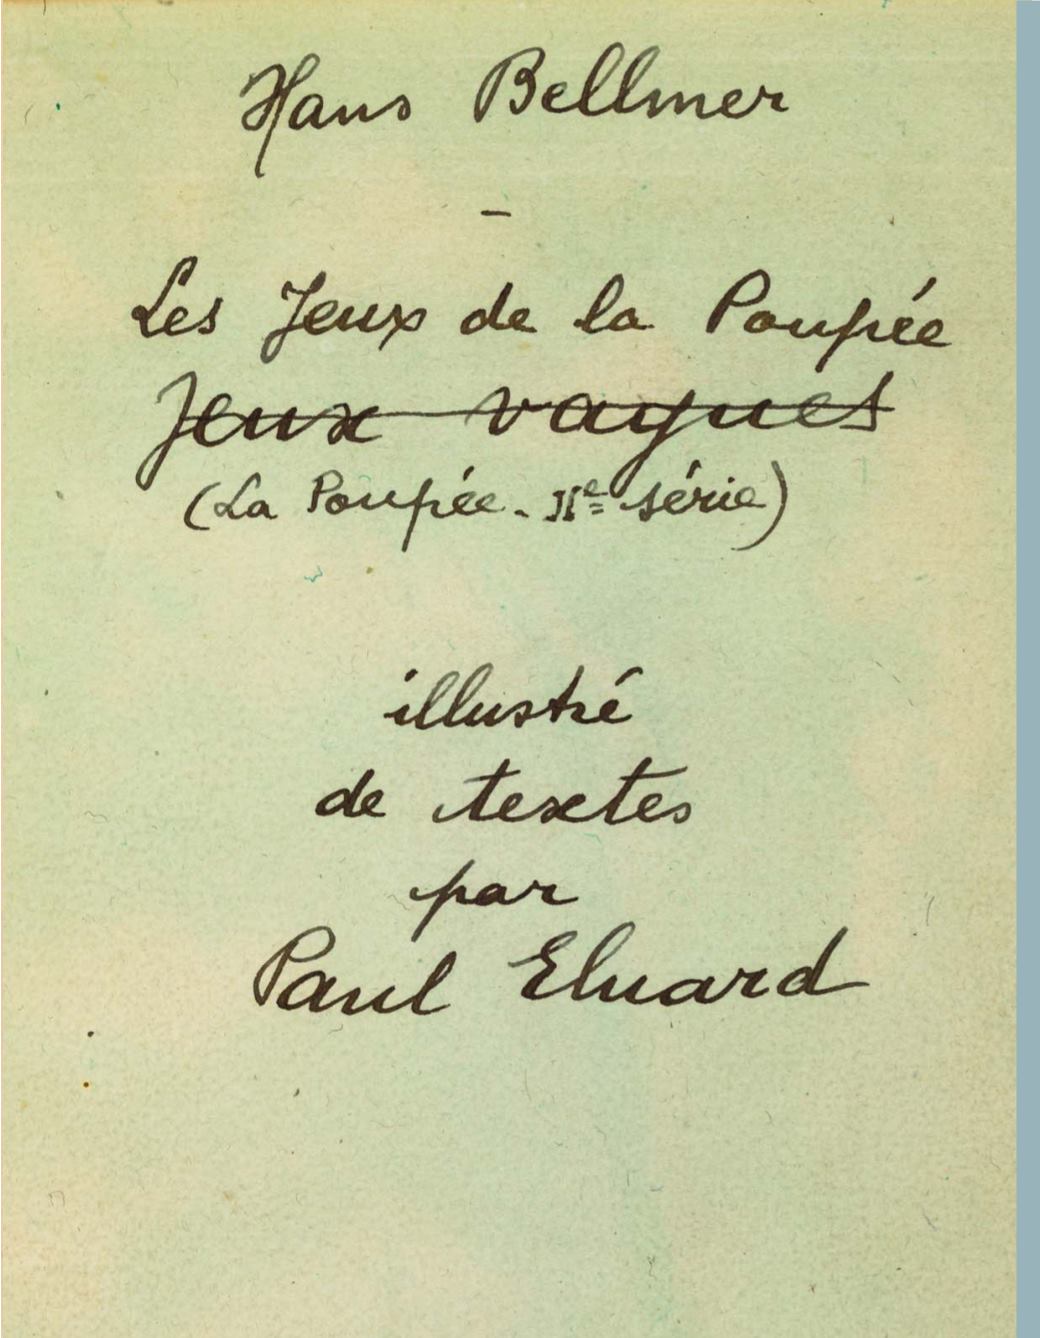 Hans Bellmer
–
Les Jeux de la Poupée
Jeux vagues
(La Poupée - IIe série)
illustré
de textes
par
Paul Eluard